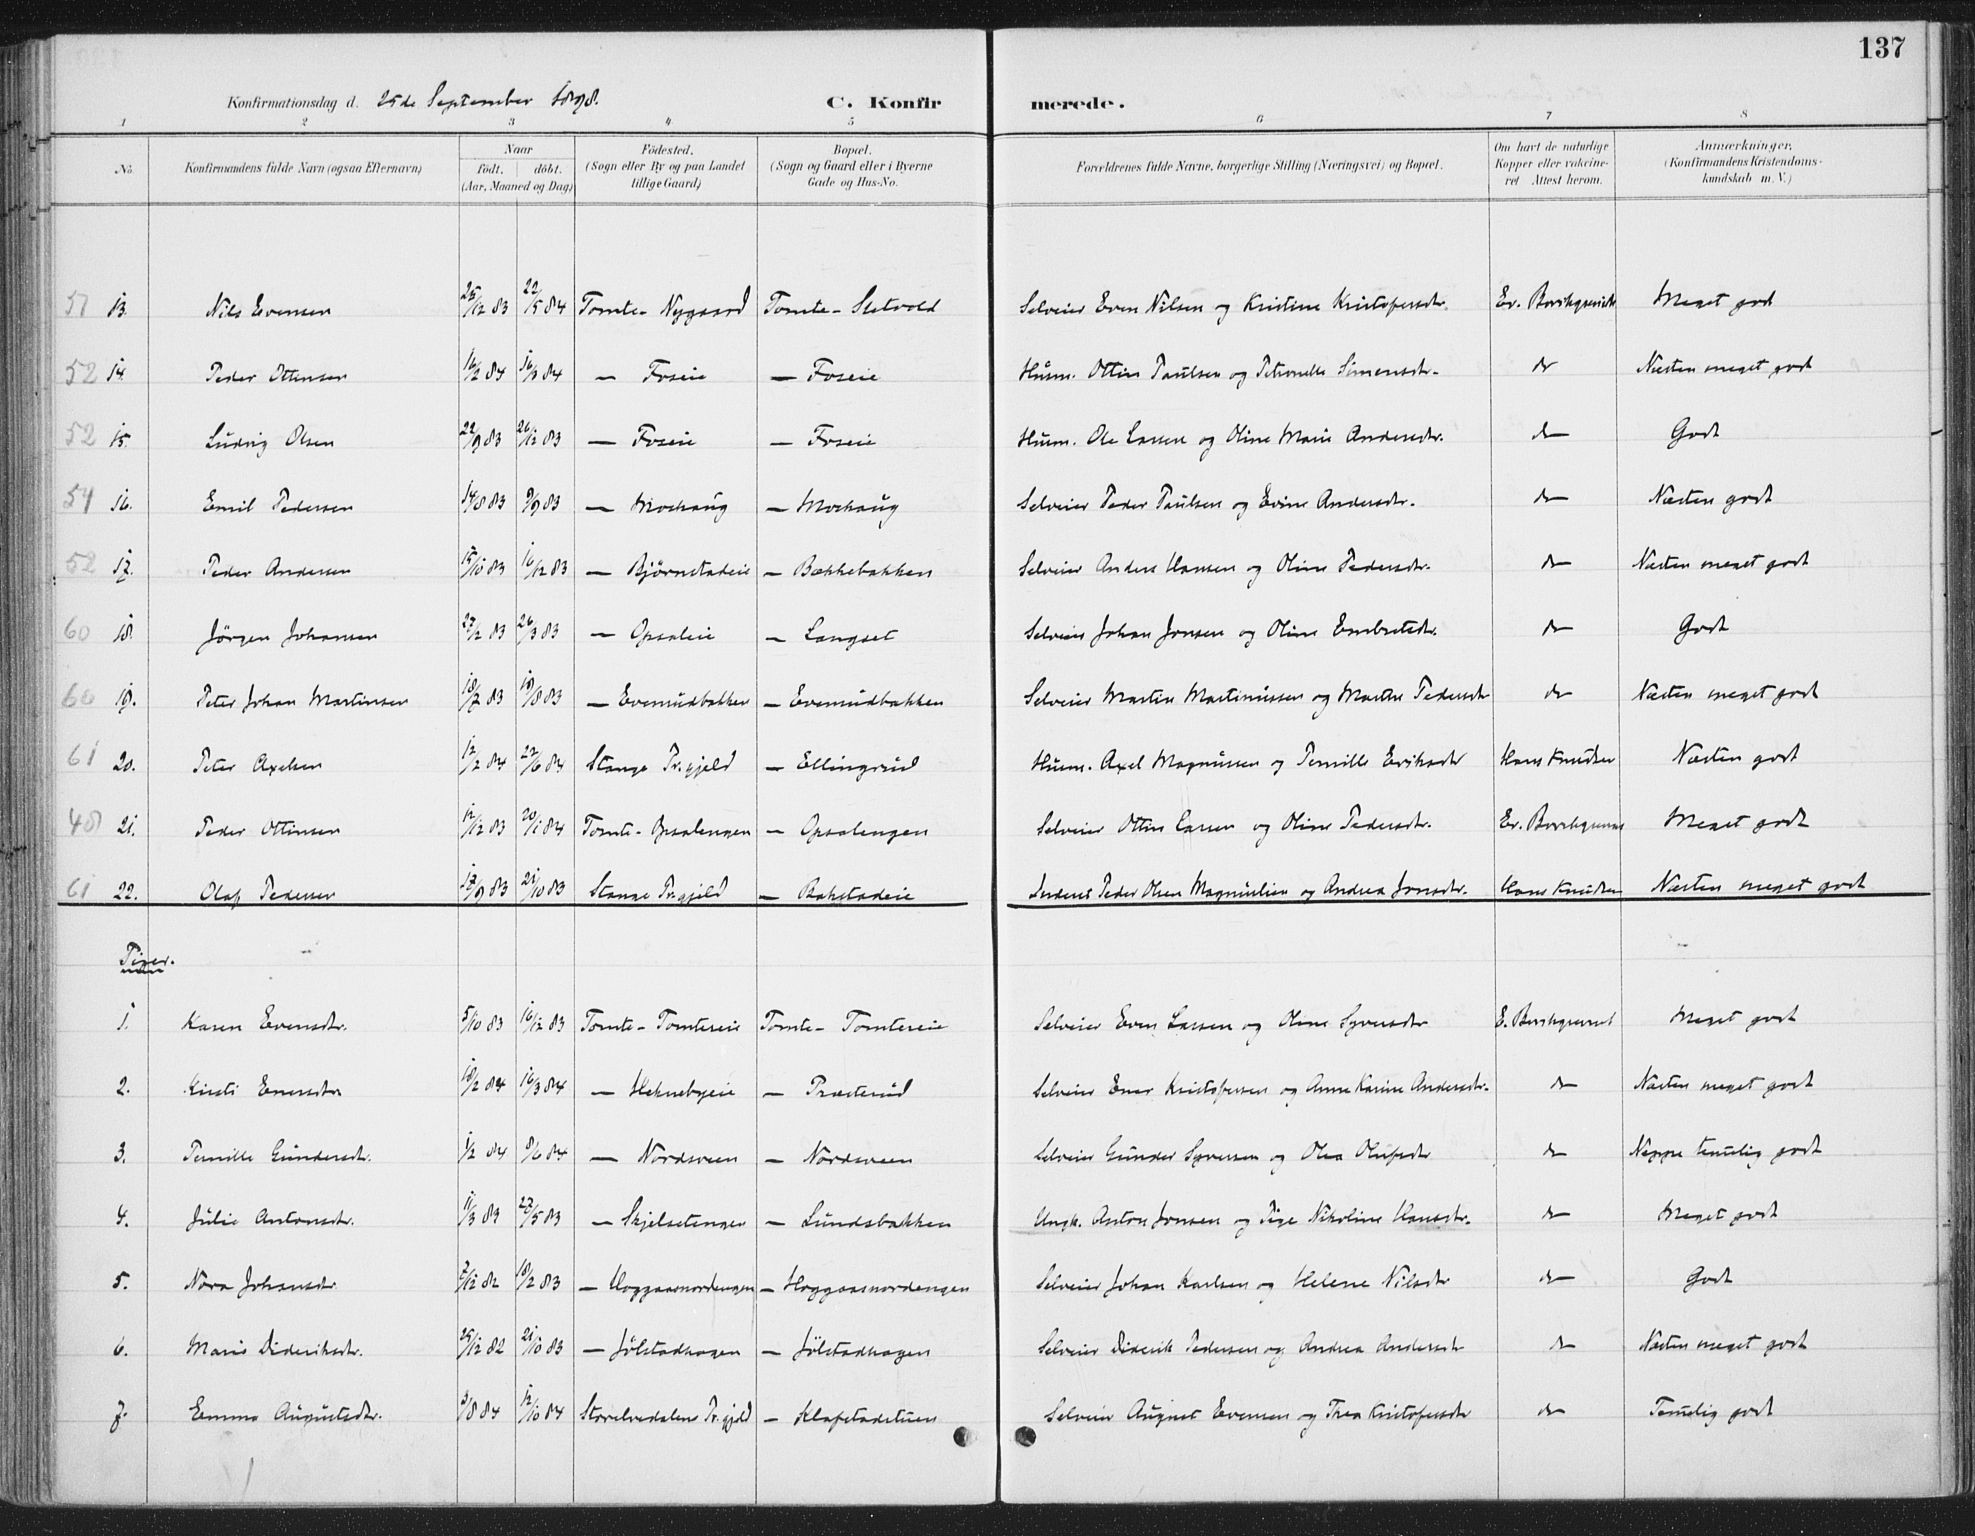 137
Konfirmationsdag d. 25de September 1898. C. Konfirmerede.
1 2 3 4 5 6 7 8
No. Konfirmandens fulde Navn (ogsaa Efternavn) Naar født. døbt. (Aar, Maaned og Dag) Fødested. (Sogn eller By og paa Landet tillige Gaard) Bopæl. (Sogn og Gaard eller i Byerne Gade og Hus-No. Forældrenes fulde Navne, borgerlige Stilling (Næringsvei) og Bopæl. Om havt de naturlige Kopper eller vakcineret Attest herom. Anmærkninger. (Konfirmandens Kristendomskundskab m. V.)
51 13. Nils Evensen 25/12 83 22/5 84 Tomte - Nygaard Tomte - Sletvold Selveier Even Nilsen og Kristine Kristofersdtr. Ev. Meget godt
52 14. Peder Ottinsen 16/2 84 16/3 84 — Foseie — Foseie Husm. Ottin Paulsen og Petronelle Simensdtr. do Næsten meget godt
52 15. Ludvig Olsen 22/9 83 26/12 83 — Foseie — Foseie Husm. Ole Larsen og Oline Marie Andersdtr. do Godt
54 16. Emil Pedersen 14/8 83 9/9 83 — Mochaug — Mochaug Selveier Peder Paulsen og Evine Andersdtr. do Næsten godt
52 17. Peder Andersen 15/10 83 16/12 83 — Bjørnstadeie — Bækkebakken Selveier Anders Hansen og Oline Pedersdtr. do Næsten meget godt
60 18. Jørgen Johansen 27/2 83 26/3 83 — Opsaleie — Langset Selveier Johan Jonsen og Oline Embretsdtr. do Godt
60 19. Peter Johan Martinsen 18/7 83 19/8 83 — Evenrudbakken — Evenrudbakken Selveier Martin Martinussen og Marthe Pedersdtr do Næsten meget godt
61 20. Peter Axelsen 12/2 84 22/6 84 Stange Pr.gjeld — Ellingsrud Husm. Axel Magnussen og Pernille Eriksdtr Hans Knudsen Næsten godt
48 21. Peder Ottinsen 12/12 83 20/1 84 Tomte - Opsalengen — Opsalengen Selveier Ottin Larsen og Oline Pedersdtr. Ev. Meget godt
61 22. Olaf Pedersen 13/9 83 21/10 83 Stange Pr.gjeld — Bakstadeie Inderst Peder Olsen Magnuslien og Andrea Jonsdtr. Hans Knudsen Næsten meget godt
Piger.
1. Karen Evensdtr. 5/10 83 16/12 83 Tomte - Tomtereie Tomte - Tomtereie Selveier Even Larsen og Oline Syversdtr E. Meget godt
2. Kirsti Enersdtr 18/2 84 16/3 84 — Heknebyeie — Præsterud Selveier Ener Kristofersen og Anne Karine Andersdtr. do Næsten meget godt
3. Pernille Gundersdtr. 1/2 84 8/6 84 — Nordsveen — Nordsveen Selveier Gunder Syversen og Olea Olufsdtr do Neppe temelig godt
4. Julie Antonsdtr. 11/3 83 27/5 83 — Skjelsetengen — Lundsbakken Ungk. Anton Jonsen og Pige Nikoline Hansdtr. do Meget godt
5. Nora Johansdtr. 7/12 82 18/2 83 — Hoggaasnordengen — Hoggaasnordengen Selveier Johan Karlsen og Helene Nilsdtr do Godt
6. Marie Dideriksdtr. 25/12 82 21/10 83 — Jølstadhagen — Jølstadhagen Selveier Diderik Pedersen og Andrea Andersdtr do Næsten meget godt
7. Emma Augustsdtr. 3/8 84 12/10 84 Storelvedalens Pr.gjeld — Klæpstadstuen Selveier August Evensen og Thea Kristofersdtr do Temelig godt